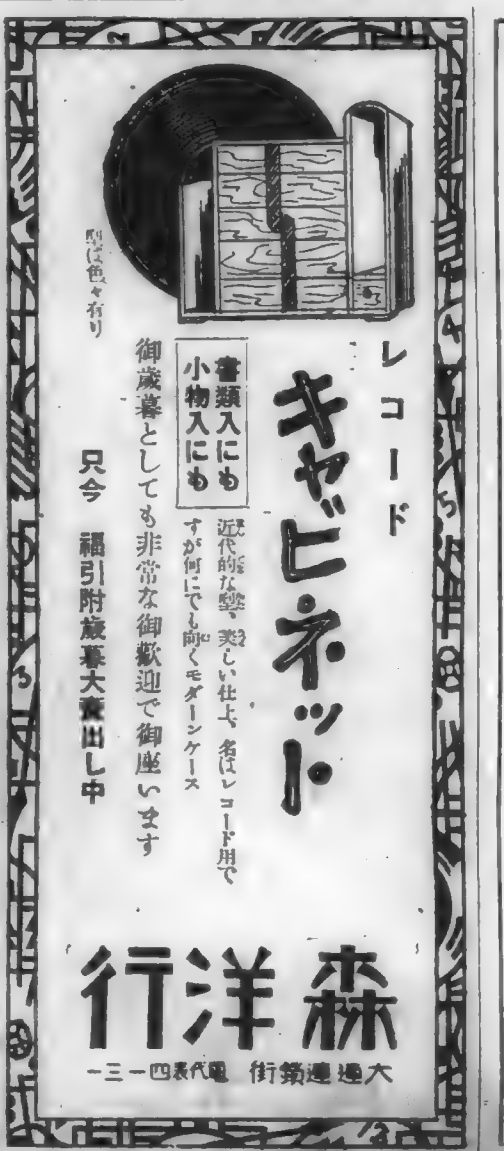 レコード
キャビネット
書類入にも
小物入にも
近代的な型、美しい仕上、名はレコード用で
すが何にでも向くモダーンケース
御歳暮としても非常な御歓迎で御座います
只今 福引附歳暮大賣出し中
型は色々有り
森洋行
大連連鎖街 電代表四一三一